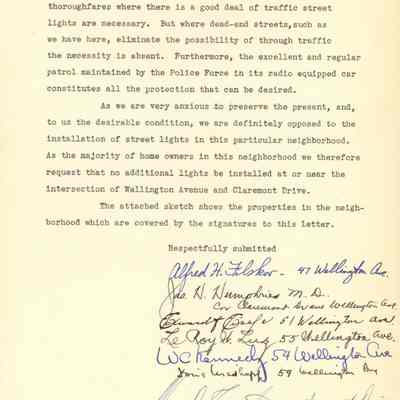 thoroughfares where there is a good deal of traffic street
lights are necessary. But where dead-end streets, such as
we have here, eliminate the possibility of through traffic
the necessity is absent. Furthermore, the excellent and regular
patrol maintained by the Police Force in its radio equipped car
constitutes all the protection that can be desired.
As we are very anxious to preserve the present, and,
to us the desirable condition, we are definitely opposed to the
installation of street lights in this particular neighborhood.
As the majority of home owners in this neighborhood we therefore
request that no additional lights be installed at or near the
intersection of Wallington Avenue and Claremont Drive.
The attached sketch shows the properties in the neigh-
borhood which are covered by the signatures to this letter.
Respectfully submitted
Alfred H. - 47 Wellington Ave.
Jas. H. Humphries M.D.
Cor Claremont Ave Wellington Ave
Edward 51 Wellington Ave.
Le Roy 55 Wellington Ave.
W C Kennedy 54 Wellington Ave
Doris 59 Wellington Ave